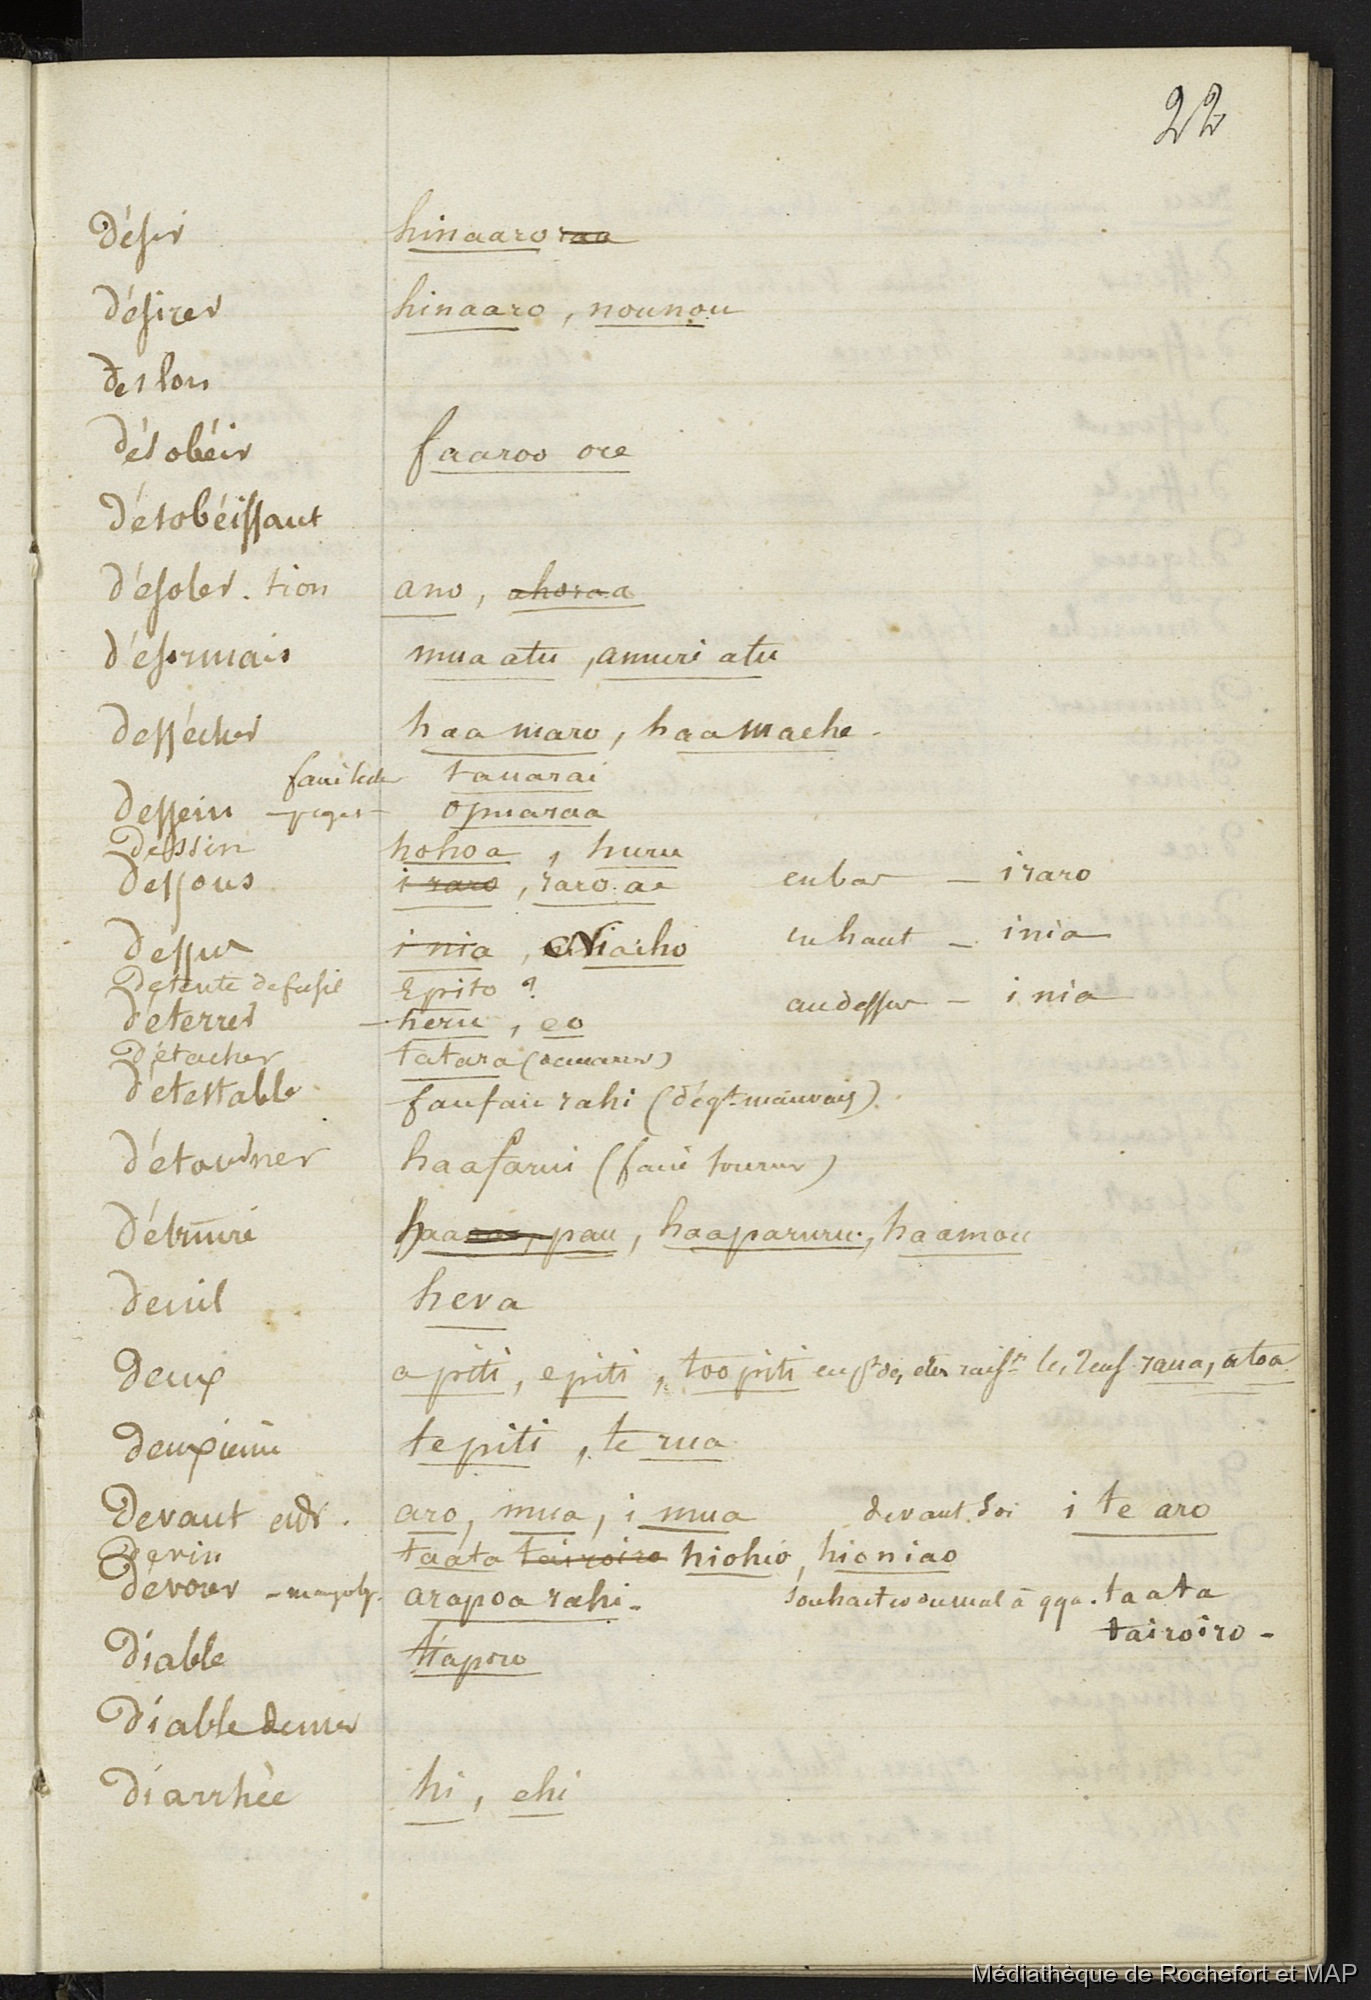 22
Désir hinaaroraa
désirer hinaaro, nounou
dès lors
désobéir faaroo ore
désobéissant
désoler. tion ano, ahoraa
désormais mua atu, amuri atu
dessécher haa maro, haamaehe.
tauarai
dessein opuaraa
Dessin hohoa, huru
dessous i raro, raro ae en bas _ iraro
dessus i nia, Niaiho en haut _ inia
Detente de fusil Epito ?
au dessus _ i nia
déterrer heru, eo
Détacher tatara (demarrer)
détestable faufau rahi (dégt mauvais)
détourner haafarui (faire tourner)
détruire haa pau, haaparuru, haamou
deuil heva
deux apiti, epiti, toopiti les deux raua, atoa
deuxième te piti, te rua
Devant adv. aro, mua, i mua devant soi i te aro
Devin taata tairoiro hiohio, hioniao
dévorer arapoa rahi. souhaiter du mal à qqn. taata
tairoiro -
diable tiaporo
diable de mer
diarrhée hi, ehi
Médiathèque de Rochefort et MAP